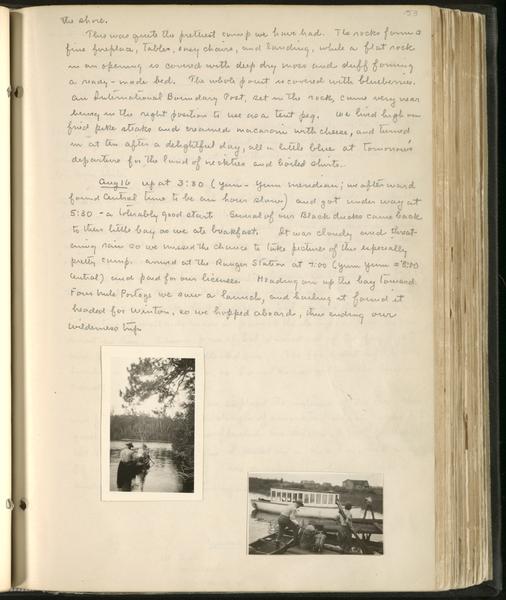 53
the shore.
This was quite the prettiest camp we have had. The rocks form a
fine fireplace, tables, easy chairs, and landing, while a flat rock
in an opening is covered with deep dry moss and duff forming
a ready-made bed. The whole point is covered with blueberries.
An International Boundary Post, set in the rock, came very near
being in the right position to use as a tent peg. We lived high on
fried pike steaks and creamed macaroni with cheese, and turned
in at ten after a delightful day, all a little blue at tomorrow's
departure for the land of neckties and boiled shirts.
Aug 16 up at 3:30 (Yum-Yum meridian; we afterward
found Central time to be an hour slow) and got under way at
5:30 - a tolerably good start. Several of our Black ducks came back
to their little bay as we ate breakfast. It was cloudy and threat-
ening rain so we missed the chance to take pictures of this especially
pretty camp. Arrived at the Ranger Station at 7:00 (Yum Yum =
Central) and paid for our licenses. Heading on up the bay toward
Four Mile Portage we saw a launch, and hailing it found it
headed for Winton, so we hopped aboard, thus ending our
wilderness trip.